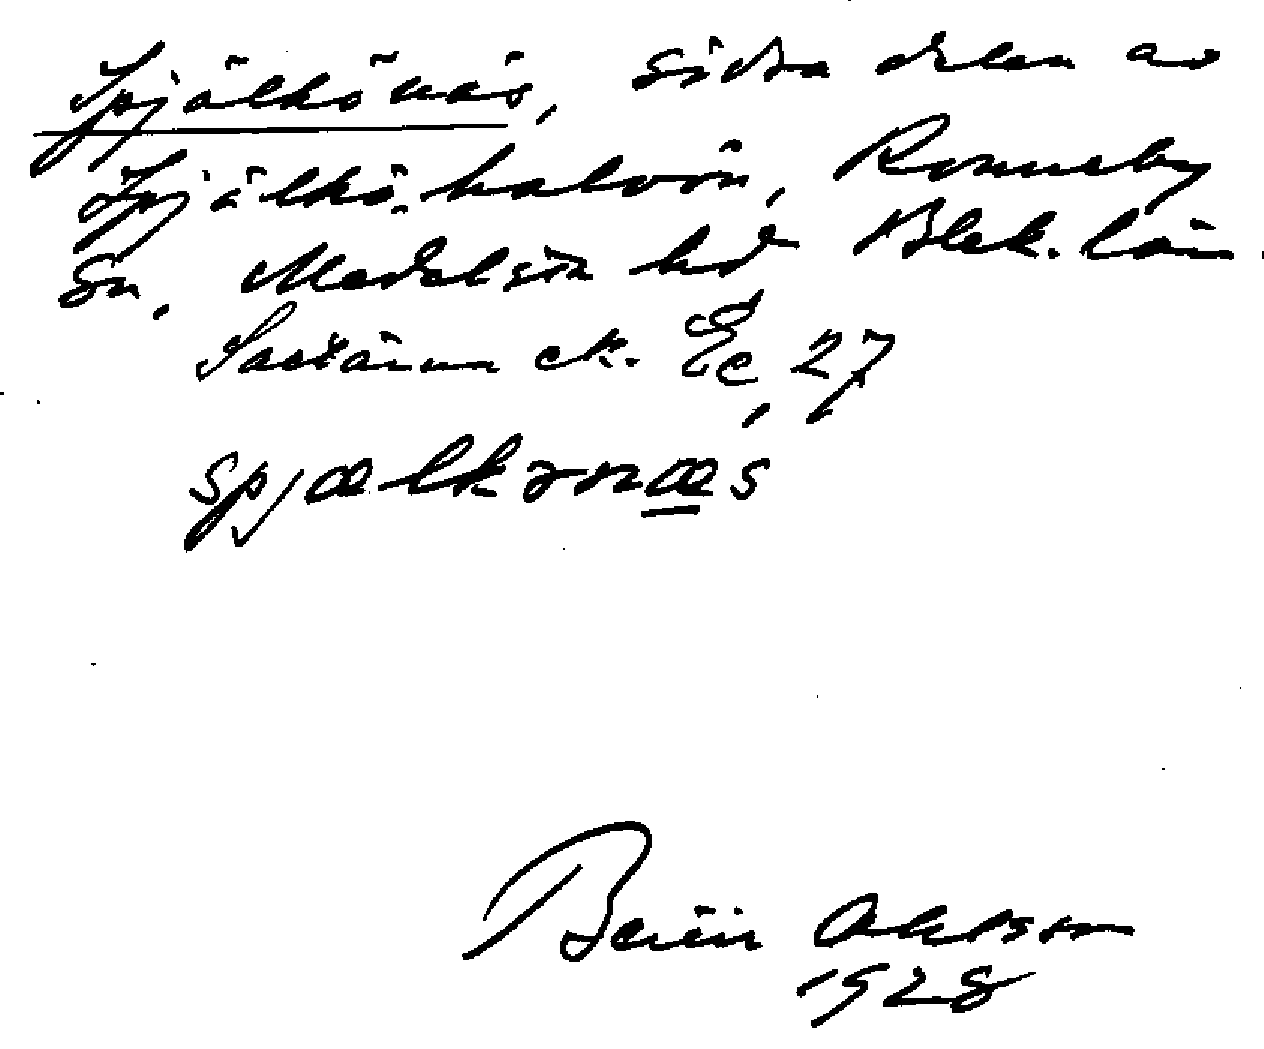 Spjälkönäs, södra delen av
Spjälkö-halvön, Ronneby
Sn. Medelsta hd Blek. län.
ek. 27
spjælkənæs
Ohlsson
1928